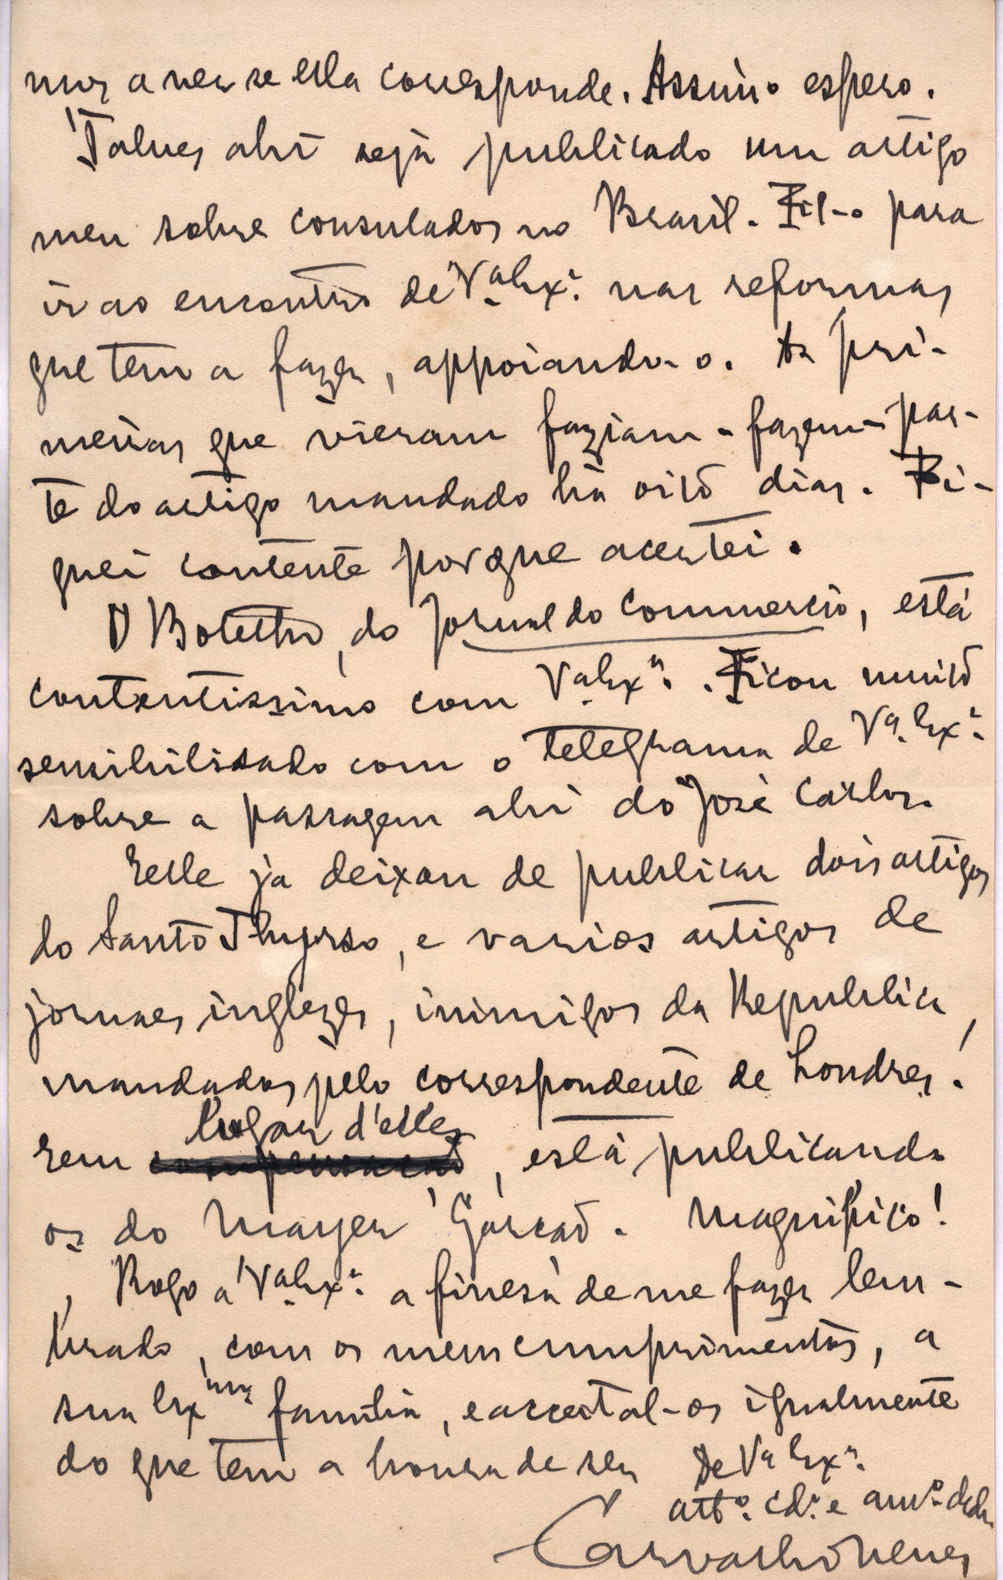 mos a ver se ella corresponde. Assim o espero.
Talvez ahi seja publicado um artigo
meu sobre consulados no Brasil. Fil-o para
ir ao encontro de Vª Exª. nas reformas
que tem a fazer, appoiando-o. As pri-
meiras que vieram faziam - fazem - par-
te do artigo mandado há oito dias. Fi-
quei contente porque acertei.
O Botelho, do Jornal do Commercio, está
contentissimo com Vª Exª. Ficou muito
sensibilisado com o telegrama de Vª. Exª.
sobre a passagem ahi do José Carlos.
Elle já deixou de publicar dois artigos
do Santo Thyrso, e varios artigos de
jornaes inglezes, inimigos da Republica,
mandados pelo correspondente de Londres.
lugar d'elles
Em compensação, está publicando
os do Mayer Garção. Magnifico!
Rogo a Vª Exª. a finesa de me fazer lem-
brado, com os meus cumprimentos, a
sua Exma familia, e acceital-os igualmente
do que tem a honra de ser De Vª Exª.
attº. cdº. e amº. ded.
Carvalho Neves